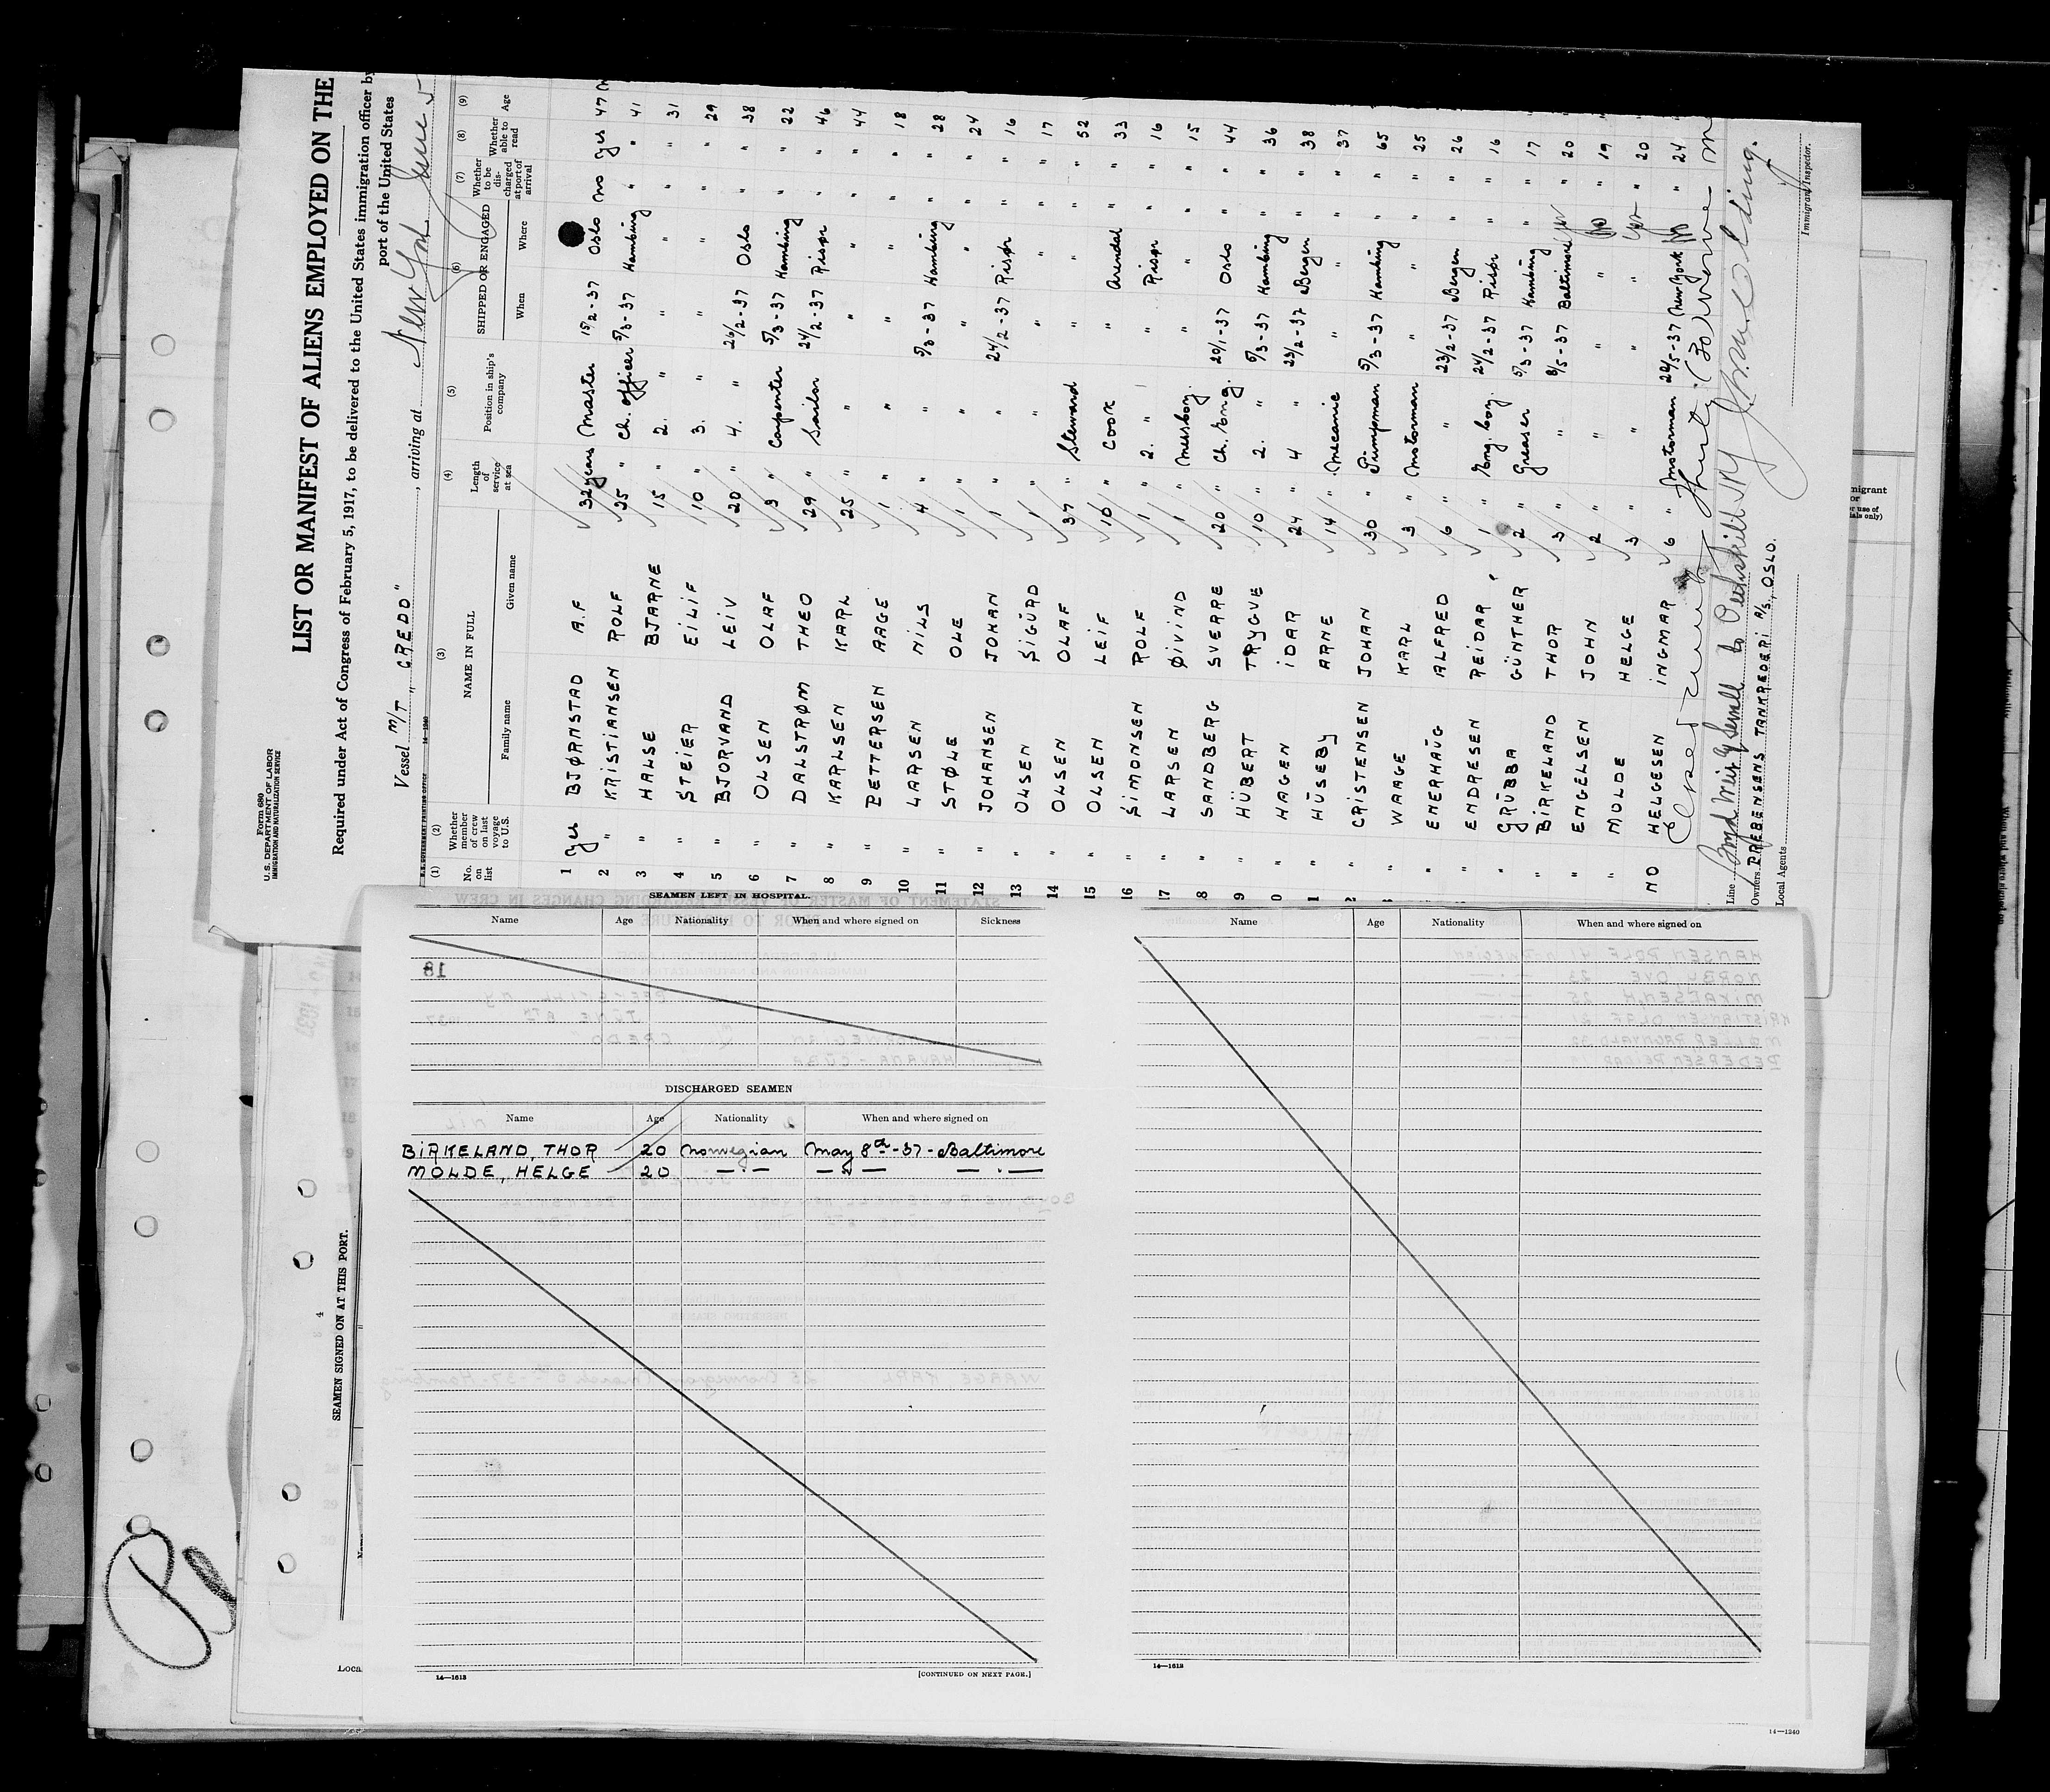 Form 680
U. S. DEPARTMENT OF LABOR
IMMIGRATION AND NATURALIZATION SERVICE
LIST OR MANIFEST OF ALIENS EMPLOYED ON THE
Required under Act of Congress of February 5, 1917, to be delivered to the United States immigration officer by
port of the United States
Vessel M/T "CREDO", arriving at New York June 5
(1) (2) (3) (4) (5) (6) (7) (8) (9)
No. on list Whether member of crew on last voyage to U.S. NAME IN FULL Family name Given name Length of service at sea Position in ship's company SHIPPED OR ENGAGED When Where Whether to be discharged at port of arrival Whether able to read Age
1 Yes BJØRNSTAD A.F 32 years Master 15/2-37 Oslo no yes 47
2 " KRISTIANSEN ROLF 25 " Ch. officer 5/3-37 Hamburg " " 41
3 " HALSE BJARNE 15 " 2. " " " " " 31
4 " STEIER EILIF 10 " 3. " " " " " 29
5 " BJORVAND LEIV 20 " 4. " 26/2-37 Oslo " " 38
6 " OLSEN OLAF 3 " Carpenter 5/3-37 Hamburg " " 22
7 " DALSTRØM THEO 29 " Sailor 24/2-37 Risør " " 46
8 " KARLSEN KARL 25 " " " " " " 44
9 " PETTERSEN AAGE 1 " " " " " " 18
10 " LARSEN NILS 4 " " 5/3-37 Hamburg " " 28
11 " STØLE OLE 1 " " " " " " 24
12 " JOHANSEN JOHAN 1 " " 24/2-37 Risør " " 16
13 " OLSEN SIGURD 1 " " " " " " 17
14 " OLSEN OLAF 37 " Steward " " " " 52
15 " OLSEN LEIF 10 " Cook " Arendal " " 33
16 " SIMONSEN ROLF 1 " 2. " " Risør " " 16
17 " LARSEN ØIVIND 1 " Messboy. " " " " 15
18 " SANDBERG SVERRE 20 " Ch. Eng. 20/1-37 Oslo " " 44
9 " HÜBERT TRYGVE 10 " 2. " 5/3-37 Hamburg " " 36
0 " HAGEN IDAR 24 " 4 " 23/2-37 Bergen " " 38
1 " HÜSEBY ARNE 14 " Mecanic " " " " 37
2 " CRISTENSEN JOHAN 30 " Pumpman 5/3-37 Hamburg " " 65
" WAAGE KARL 3 " Motorman " " " " 25
" ENERHAUG ALFRED 6 " " 23/2-37 Bergen " " 26
" ENDRESEN REIDAR 1 " Eng. boy. 24/2-37 Risør " " 16
" GRÜBBA GÜNTHER 2 " Greaser 5/3-37 Hamburg " " 17
" BIRKELAND THOR 3 " " 8/5-37 Baltimore yes " 20
" ENGELSEN JOHN 2 " " " " no " 19
" MOLDE HELGE 3 " " " " yes " 20
NO HELGESEN INGMAR 6 " Motorman 20/5-37 New York no " 24
Line Boyd Weir & Sewell
Owners PREBENSENS TANKREDERI A/S, OSLO.
Local Agents
Immigrant Inspector.
SEAMEN LEFT IN HOSPITAL.
Name Age Nationality When and where signed on Sickness
DISCHARGED SEAMEN
Name Age Nationality When and where signed on
BIRKELAND, THOR 20 Norwegian May 8th-37-Baltimore
MOLDE, HELGE 20 — " — — " — — " —
14—1613
[CONTINUED ON NEXT PAGE.]
Name Age Nationality When and where signed on
14—1613
14—1240
SEAMEN SIGNED ON AT THIS PORT.